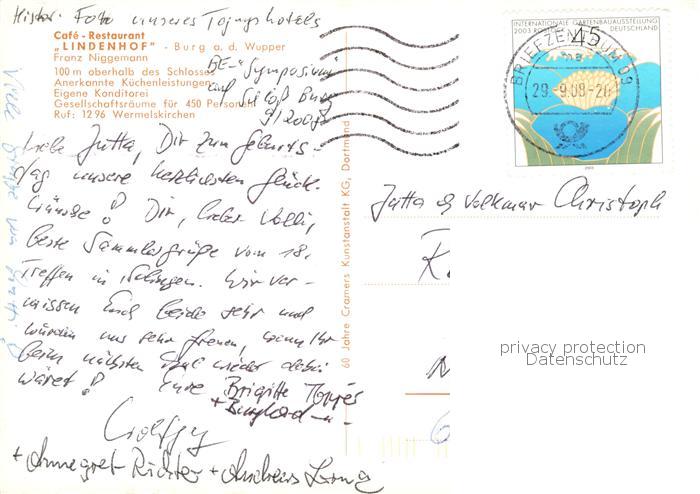 Histor. Foto unseres Tagungshotels
Café - Restaurant
„LINDENHOF" - Burg a. d. Wupper
Franz Niggemann
100 m oberhalb des Schlosses
Anerkannte Küchenleistungen
Eigene Konditorei
Gesellschaftsräume für 450 Personen
Ruf: 1296 Wermelskirchen
Symposium
auf Schloß Burg
9/2008
Liebe Jutta, Dir zum Geburts-
tag unsere herzlichsten Glück-
wünsche! Dir, lieber Volki,
beste Sammlergrüße vom 18.
Treffen in Solingen. Wir ver-
missen Euch beide sehr und
würden uns sehr freuen, wenn Ihr
beim nächsten Mal wieder dabei
wäret! Eure Brigitte
+ Burghard
Wolfgang
+ Annegret Richter + Andreas
Viele Grüße von
60 Jahre Cramers Kunstanstalt KG, Dortmund
INTERNATIONALE GARTENBAUAUSSTELLUNG
2003 ROSTOCK DEUTSCHLAND
45
BRIEFZENTRUM 09
29.-9.08-20
2003
Jutta & Volkmar Christoph
privacy protection
Datenschutz